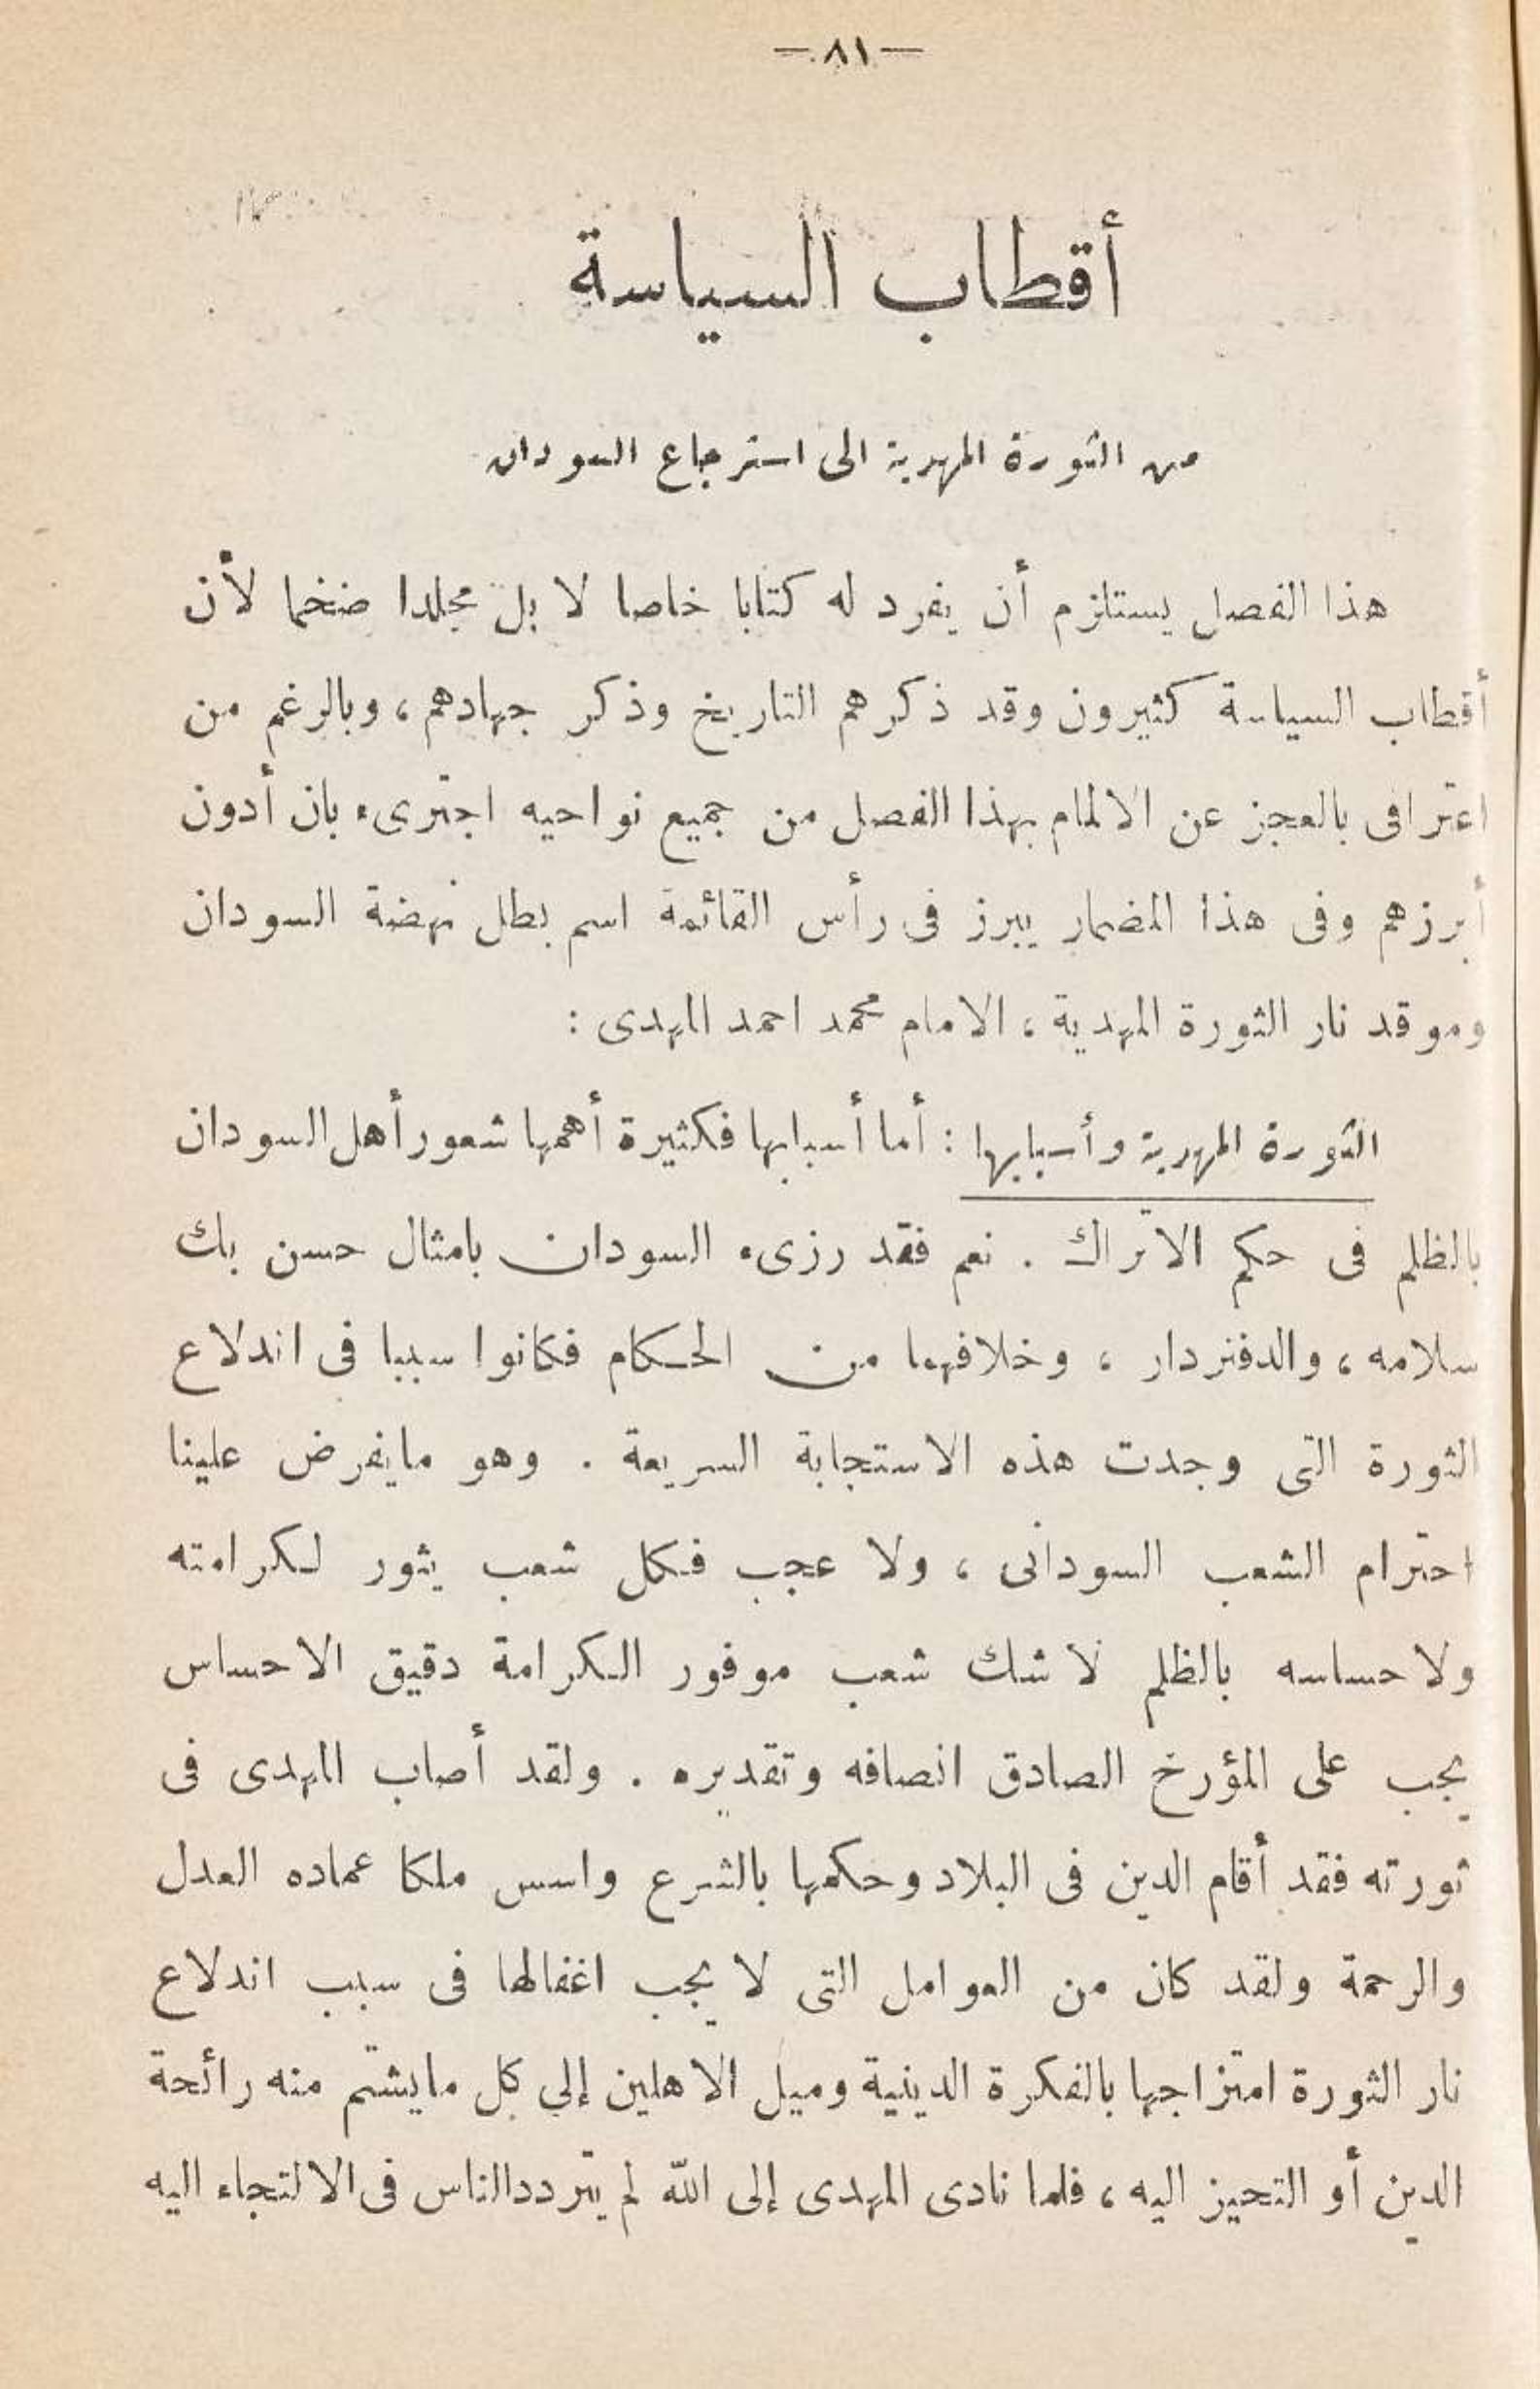 — ٨١ —
أقطاب السياسة
من الثورة المهدية الى استرجاع السودان
هذا الفصل يستلزم أن يفرد له كتابا خاصا لا بل مجلدا ضخما لأن
أقطاب السياسة كثيرون وقد ذكرهم التاريخ وذكر جهادهم، وبالرغم من
اعترافى بالعجز عن الالمام بهذا الفصل من جميع نواحيه اجترىء بان أدون
أبرزهم وفى هذا المضمار يبرز فى رأس القائمة اسم بطل نهضة السودان
وموقد نار الثورة المهدية، الامام محمد احمد المهدى :
الثورة المهدية وأسبابها : أما أسبابها فكثيرة أهمها شعور أهل السودان
بالظلم فى حكم الاتراك . نعم فقد رزىء السودان بامثال حسن بك
سلامه، والدفتردار ، وخلافهما من الحكام فكانوا سببا فى اندلاع
الثورة التى وجدت هذه الاستجابة السريعة . وهو مايفرض علينا
احترام الشعب السودانى ، ولا عجب فكل شعب يثور لكرامته
ولاحساسه بالظلم لا شك شعب موفور الكرامة دقيق الاحساس
يجب على المؤرخ الصادق انصافه وتقديره . ولقد أصاب المهدى فى
ثورته فقد أقام الدين فى البلاد وحكمها بالشرع واسس ملكا عماده العدل
والرحمة ولقد كان من العوامل التى لا يجب اغفالها فى سبب اندلاع
نار الثورة امتزاجها بالفكرة الدينية وميل الاهلين إلى كل مايشتم منه رائحة
الدين أو التحيز اليه، فلما نادى المهدى إلى الله لم يتردد الناس فى الالتجاء اليه